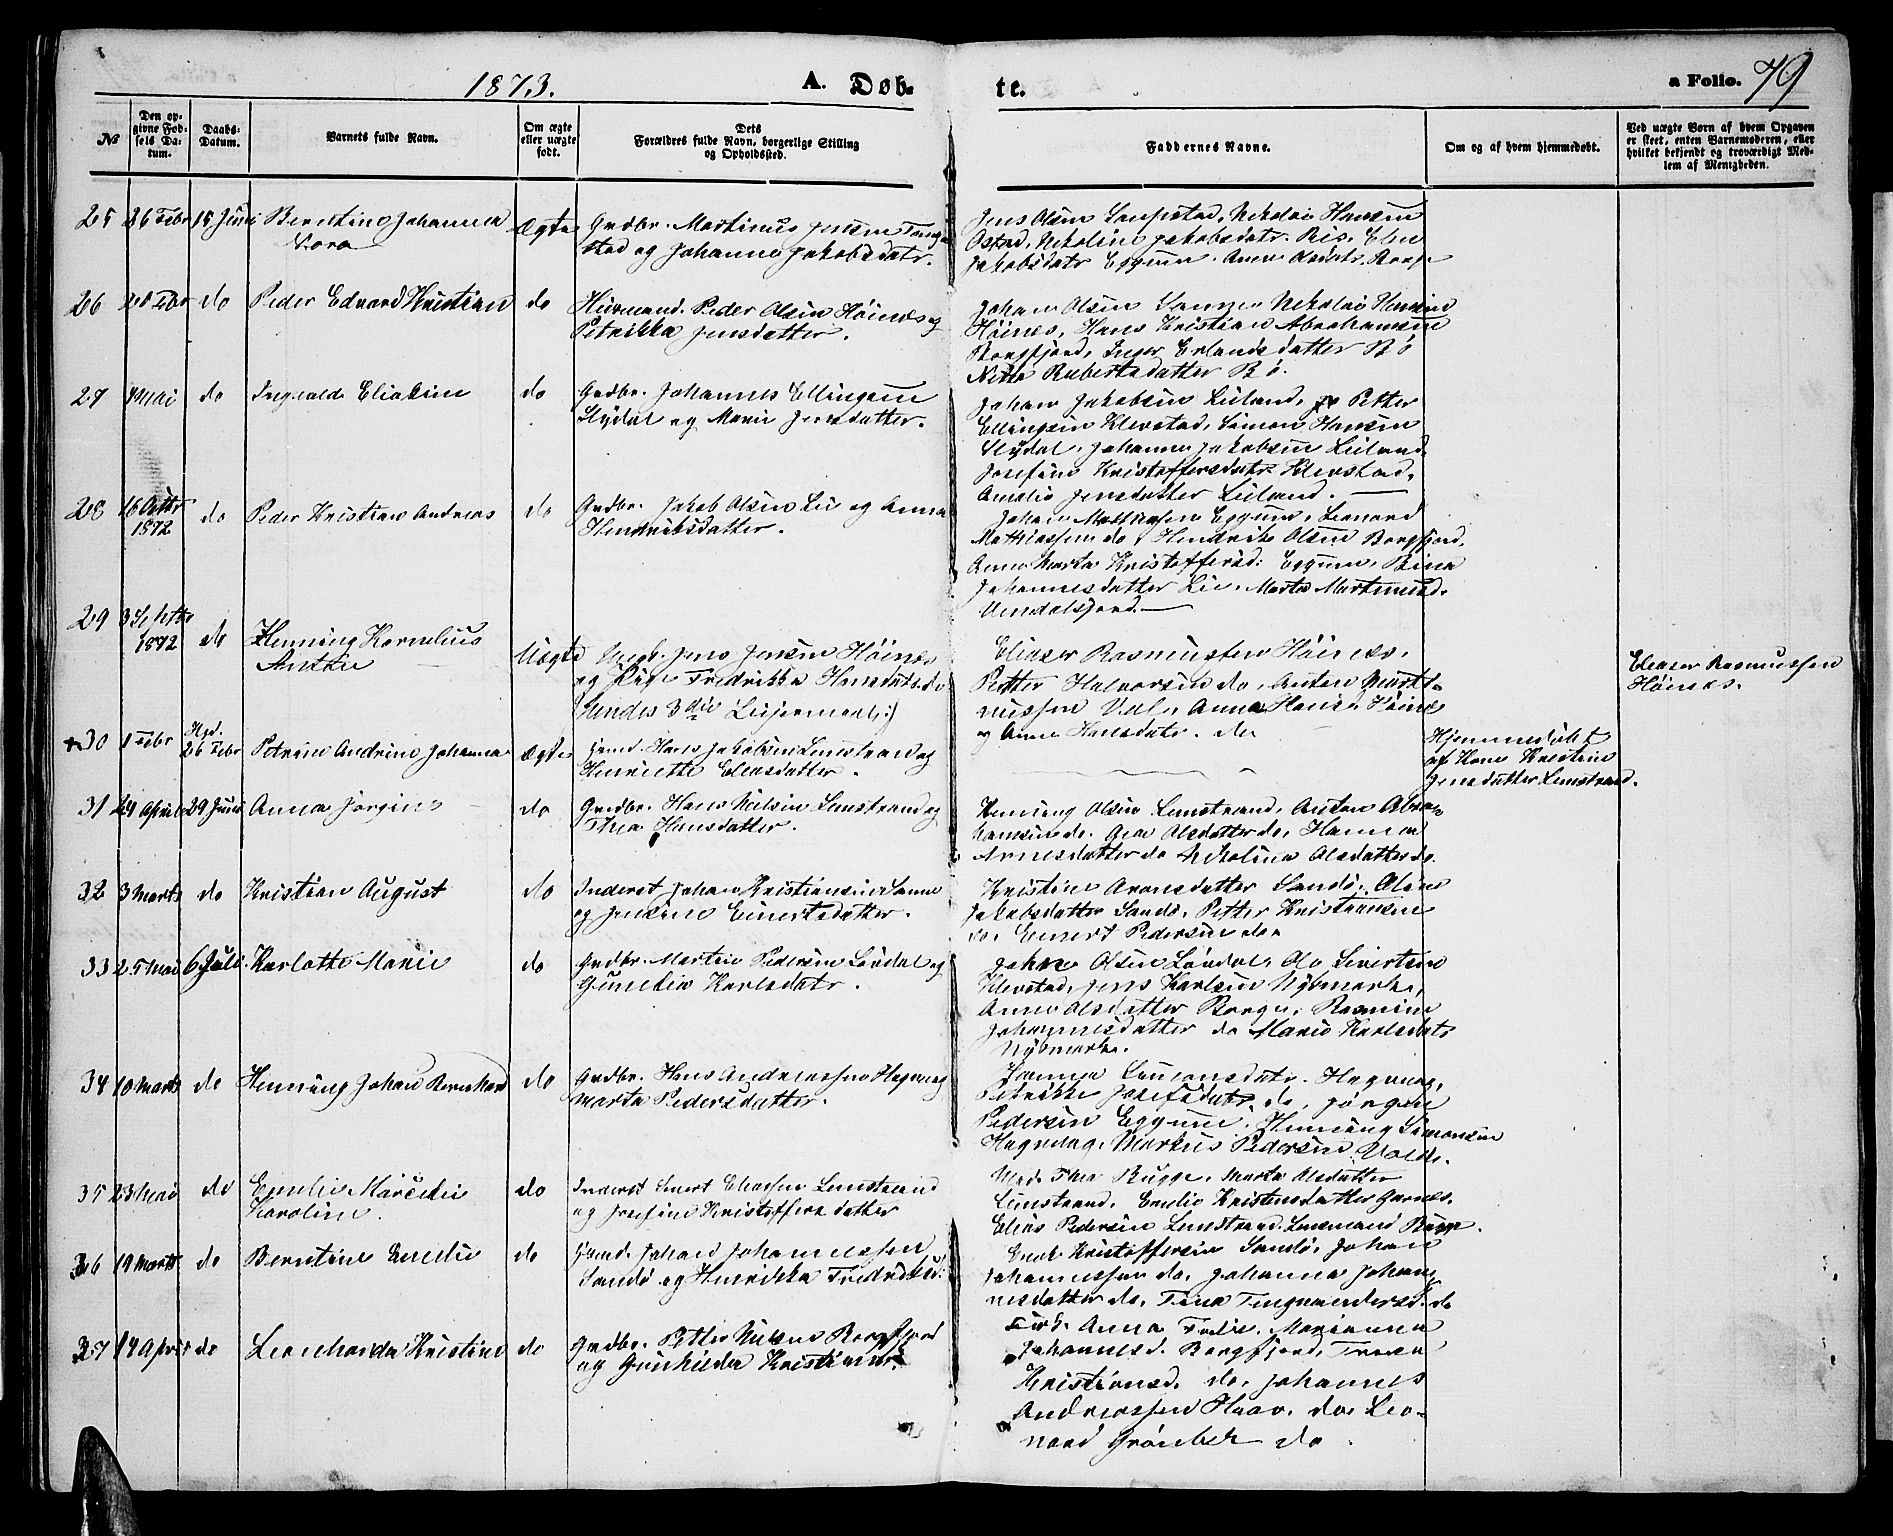 1873.
A. Døb-
te.
a Folio. 79
No
Den op-
givne Fød-
sels Da-
tum.
Daabs-
Datum.
Barnets fulde Navn.
Om ægte
eller uægte
født.
Dets
Forældres fulde Navn, borgerlige Stilling
og Opholdssted.
Faddernes Navne.
Om og af hvem hjemmedøbt.
Ved uægte Børn af hvem Opgaven
er skeet, enten Barnemoderen, eller
hvilket bekjendt og troværdigt Med-
lem af Menigheden.
25 26 Febr 15 Juni Berntine Johanna
Nora
Ægte
Grdbr. Martinus Jensen
stad og Johanna Jakobsdatr.
Jens Olsen Nikolai Hansen
Nikoline Jakobsdatr. Ris. Elen
Jakobsdatr Eggum. Anna Olsdatr. Borge
26 28 Febr do Peder Edvard Kristian do
Huusmand. Peder Olsen Höines og
Petrikka Jensdatter.
Johan Olsen Nikolai Hansen
Höines, Hans Kristian Abrahamsen
Borgfjord, Inger Erlandsdatter Bö
Rebertsdatter Bö.
27 4 Mai do Ingvald Eliakim do
Grdbr. Johannes Ellingsen
Slydal og Marie Jensdatter.
Johan Jakobsen Leiland, Petter
Ellingsen Klevstad, Simon Hansen
Slydal, Johanna Jakobsen Leiland
Josefine Kristoffersdatr Klevstad,
Amalie Jensdatter Leiland.
28 16 Octbr
1872 do Peder Kristian Andreas do
Grdbr. Jakob Olsen Lie og Anna
Hendriksdatter.
Johan Mathiasen Eggum, Leonard
Mathiassen do, Hendrik Olsen Borgfjord,
Anne Marta Kristoffersd: Eggum, Bina
Johannesdatter Lie. Marta Martinusd.
29 3 Septbr
1872 do Henning Kornelius
Uægte
Ungk. Jens Jensen Höines
og Pige Fredrikka Hansdatr. do
hendes 3die Leiermaal:)
Elieser Rasmussen Höines,
Petter Halvorsen do, Anton Marti-
nussen Anna Hansd. Höines
og Anne Hansdatr. do
Elieser Rasmussen
Höines.
+30 1 Febr Hjd.
26 Febr Petrine Andrine Johanna Ægte
Hans Jakobsen Limstrand og
Henriette Eliasdatter.
Hjemmedöbt
af Kone Kristine
Jensdatter Limstrand.
31 24 April 29 Juni Anna Jörgine do
Grdbr. Hans Nielsen Limstrand og
Thea Hansdatter.
Henning Olsen Limstrand, Anton Abra-
hamsen do. Olsdatter do, Hanna
Arnesdatter do Nikolina Olsdatter do.
32 3 Marts do Kristian August do
Inderst Johan Kristiansen
og Jensine Einertsdatter.
Kristine Aronsdatter Sandö, Oline
Jakobsdatter Sandö. Petter Kristiansen
do, Einert Pedersen do.
33 25 Mai 6 Juli Karlotte Marie do
Grdbr. Martin Pedersen Löndal og
Gunelia Karlsdatr.
Olsen Löndal, Ole Sivertsen
Klevstad, Jens Karlsen Nybmark,
Anne Olsdatter Borge, Rasmine
Johannesdatter do Marie Karlsdatr
Nybmark.
34 10 Marts do Henning Johan Bernhard do
Grdbr. Hans Andreassen Hagvaag
Marta Pedersdatter.
Hanna Simonsdatr. Hagvaag,
Petrikke Josefsdatr. do, Jörgen
Pedersen Eggum, Henning Simonsen
Hagvaag, Markus Pedersen
35 23 Mai do Emelie
Karoline. do
Inderst Einert Eliassen Limstrand
og Josefine Kristoffersdatter
Mad. Thea Bugge, Marta Olsdatter
Limstrand. Emilie Kristensdatter
Elias Pedersen Limstrand. Lensmand Bugge.
36 19 Marts do Berntine Emelie do
Johan Johannessen
Sandö og Henrikka Fredriksd:
Enok Kristoffersen Sandö, Johan
Johannessen do, Johanna Johan-
nesdatter do, do
37 19 April do Leonharda Kristine do
Grdbr. Petter Nilsen Borgfjord
og Gunhilda
Anna Marianna
Johannesd. Borgfjord,
Kristiansd. do, Johannes
Andreassen do, Leo-
nard Grönbek do.